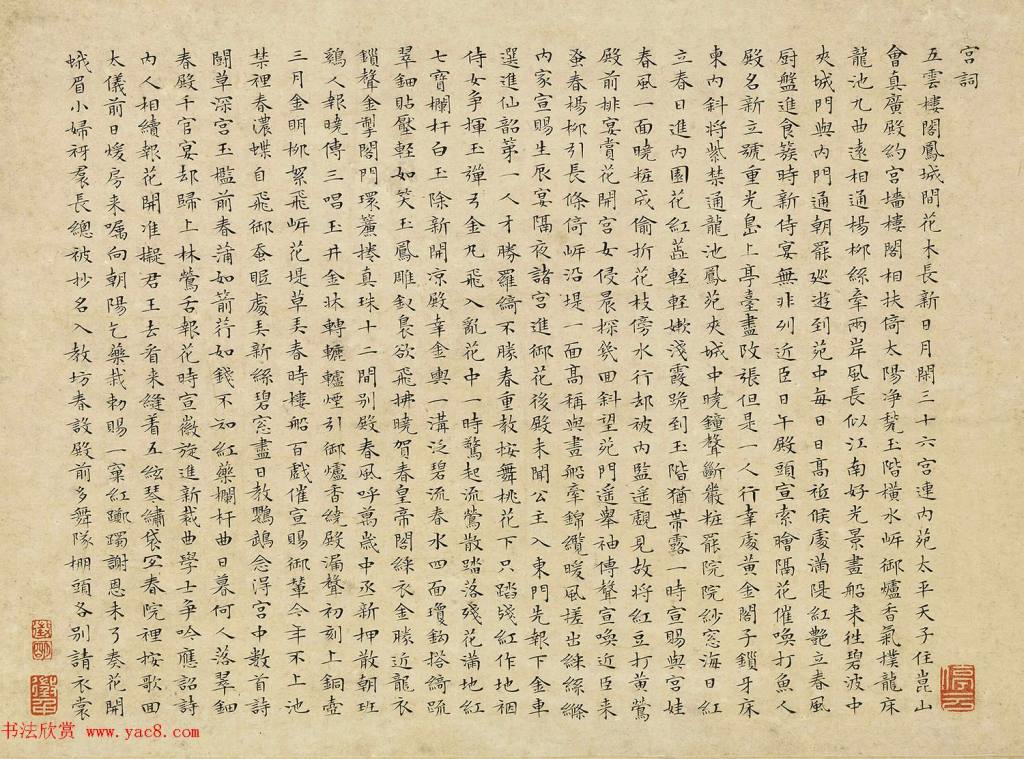 宮詞
五雲樓閣鳳城間花木長新日月閑三十六宮連內苑太平天子住崑山
會真廣殿約宮墻樓閣相扶倚太陽淨甃玉階橫水岍御爐香氣撲龍床
龍池九曲遠相通楊柳絲牽兩岸風長似江南好光景畫船來徃碧波中
夾城門與內門通朝罷廵遊到苑中每日日高祗候處滿隄紅艷立春風
厨盤進食簇時新侍宴無非列近臣日午殿頭宣索膾隔花催喚打魚人
殿名新立號重光島上亭臺盡改張但是一人行幸處黃金閣子鎖牙床
東內斜將紫禁通龍池鳳苑夾城中曉鐘聲斷嚴粧罷院院紗窓海日紅
立春日進內園花紅蕋輕輕嫩淺霞跪到玉階猶帶露一時宣賜與宮娃
春風一面曉粧成偷折花枝傍水行却被內監遙覷見故將紅豆打黃鶯
殿前排宴賞花開宮女侵晨探幾回斜望苑門遙舉袖傳聲宣喚近臣來
蚤春楊柳引長條倚岍沿堤一面高稱與畫船牽錦纜暖風搓出綵絲絛
內家宣賜生辰宴隔夜諸宮進御花後殿未聞公主入東門先報下金車
選進仙韶第一人才勝羅綺不勝春重教按舞桃花下只踏殘紅作地裀
侍女爭揮玉彈弓金丸飛入亂花中一時驚起流鶯散踏落殘花滿地紅
七寶欄杆白玉除新開凉殿幸金輿一溝泛碧流春水四面瓊鈎搭綺疏
翠鈿貼壓輕如笑玉鳳雕釵裊欲飛拂曉賀春皇帝閣綵衣金勝近龍衣
鎖聲金掣閣門環簾捲真珠十二間別殿春風呼萬歲中丞新押散朝班
鷄人報曉傳三唱玉井金牀轉轆轤煙引御爐香繞殿漏聲初刻上銅壺
三月金明柳絮飛岍花堤草弄春時樓船百戲催宣賜御輦今年不上池
禁裡春濃蝶自飛御蚕眠處弄新絲碧窓盡日教鸚鵡念得宮中數首詩
鬪草深宮玉檻前春蒲如箭荇如錢不知紅藥欄杆曲日暮何人落翠鈿
春殿千官宴却歸上林鶯舌報花時宣徽旋進新裁曲學士爭吟應詔詩
內人相續報花開准擬君王去看來縫着五絃琴繡袋宜春院裡按歌回
太儀前日煖房來囑向朝陽乞藥栽勅賜一窠紅躑躅謝恩未了奏花開
蛾眉小婦衬羣長總被抄名入教坊春設殿前多舞隊棚頭各別請衣裳
书法欣赏 www.yac8.com